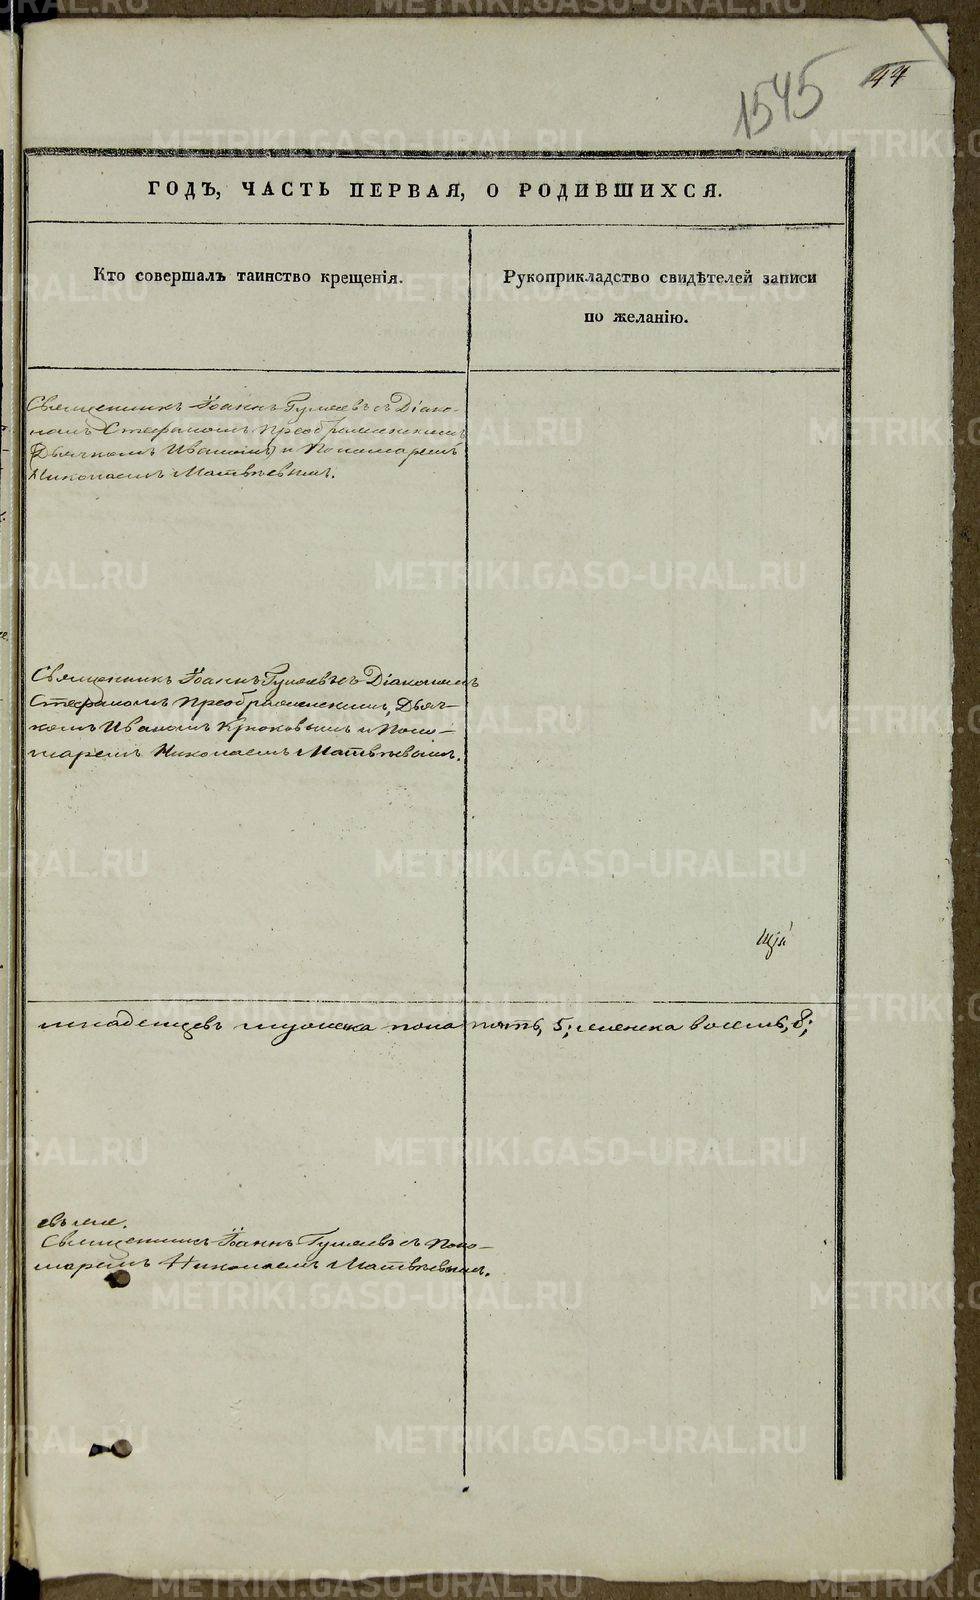 1545
44
ГОДЪ, ЧАСТЬ ПЕРВАЯ, О РОДИВШИХСЯ.
Кто совершалъ таинство крещенія.
Рукоприкладство свидѣтелей записи
по желанію.
Священникъ Іоаннъ Гуляевъ съ Діако-
номъ Стефаномъ Преображенскимъ
Дьячкомъ Иваномъ и Пономаремъ
Николаемъ Матвѣевымъ.
Священникъ Іоаннъ Гуляевъ съ Діакономъ
Стефаномъ Преображенскимъ, Дьяч-
комъ Иваномъ Крюковымъ и Поно-
маремъ Николаемъ Матвѣевымъ.
младенцевъ мужеска пола пять, 5; женска восемь, 8;
Священникъ Іоаннъ Гуляевъ съ Поно-
маремъ Николаемъ Матвѣевымъ.
METRIKI.GASO-URAL.RU